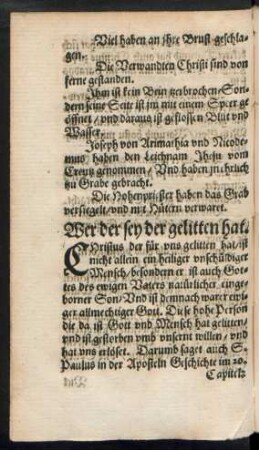 Viel haben an jhre Brust geschla-
gen.
Die Verwandten Christi sind von
ferne gestanden.
Jhm ist kein Bein zerbrochen/Son-
dern seine Seite ist jm mit einem Speer ge
öffnet/vnd daraus ist geflossen Blut vnd
Wasser.
Joseph von Arimathia vnd Nicode-
mus haben den Leichnam Jhesu vom
Creutz genommen/Vnd haben jn ehrlich
zu Grabe gebracht.
Die Hohenpriester haben das Grab
versiegelt/vnd mit Hütern verwaret.
Wer der sey der gelitten hat.
CHristus der für vns gelitten hat/ist
nicht allein ein heiliger vnschüldiger
Mensch/besondern er ist auch Got-
tes des ewigen Vaters natürlicher einge-
borner Son/Vnd ist demnach warer ewi-
ger allmechtiger Gott. Diese hohe Person
die da ist Gott vnd Mensch hat gelitten/
vnd ist gestorben vmb vnsert willen/vnd
hat vns erlöset. Darumb saget auch S.
Paulus in der Aposteln Geschichte im 20.
Capitel: